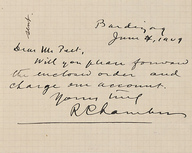 sent.
June 4, 1909
Dear Mr Teet,
Will you please forward
the enclosed order and
charge our account.
Yours truly
R Chambers